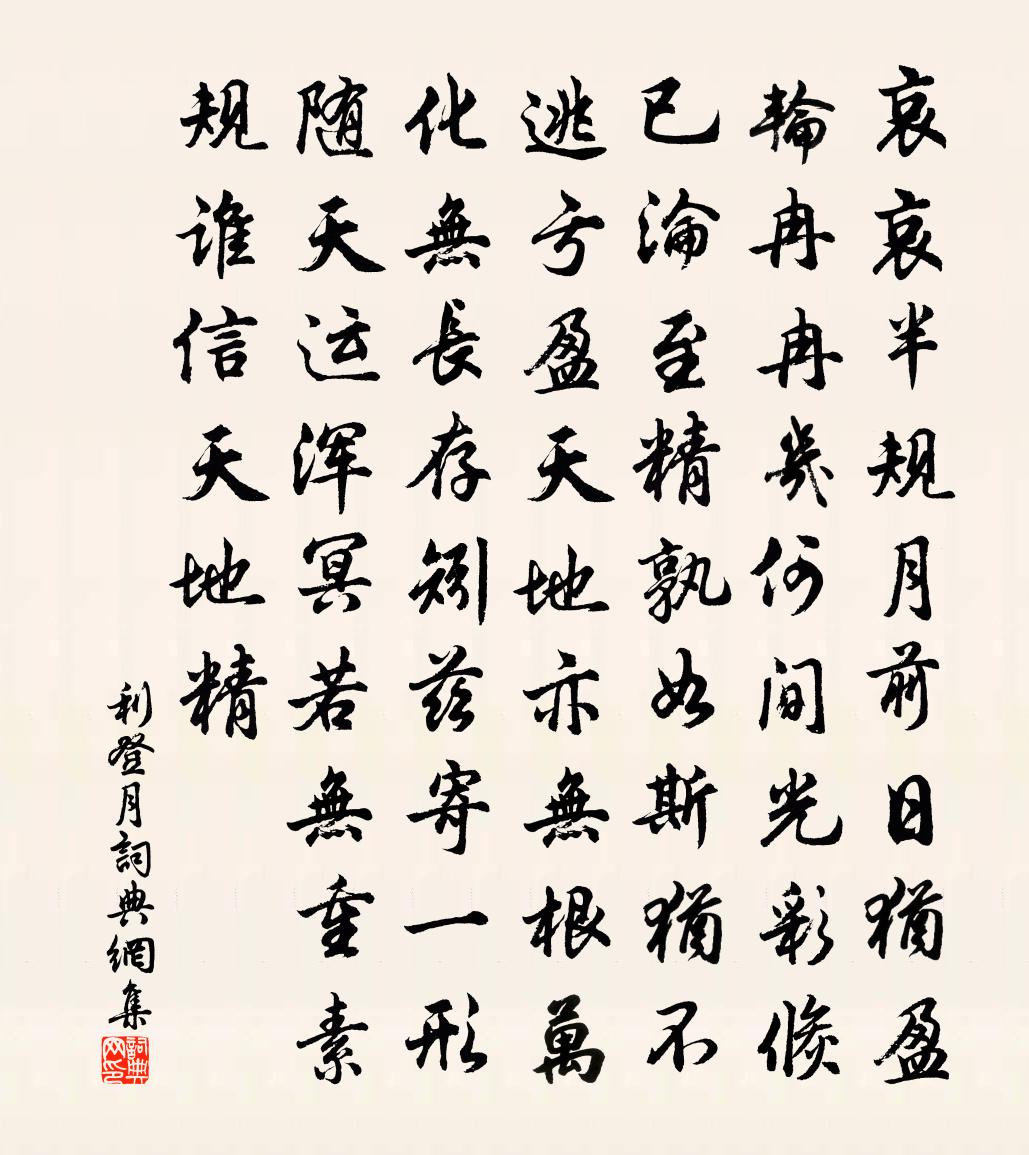 哀哀半规月前日猶盈
輪冉冉幾何間光彩倏
已淪至精孰如斯猶不
逃亏盈天地亦無根萬
化無長存矧茲寄一形
随天运浑冥若無重素
规谁信天地精
利登月詞典網集
詞典网印